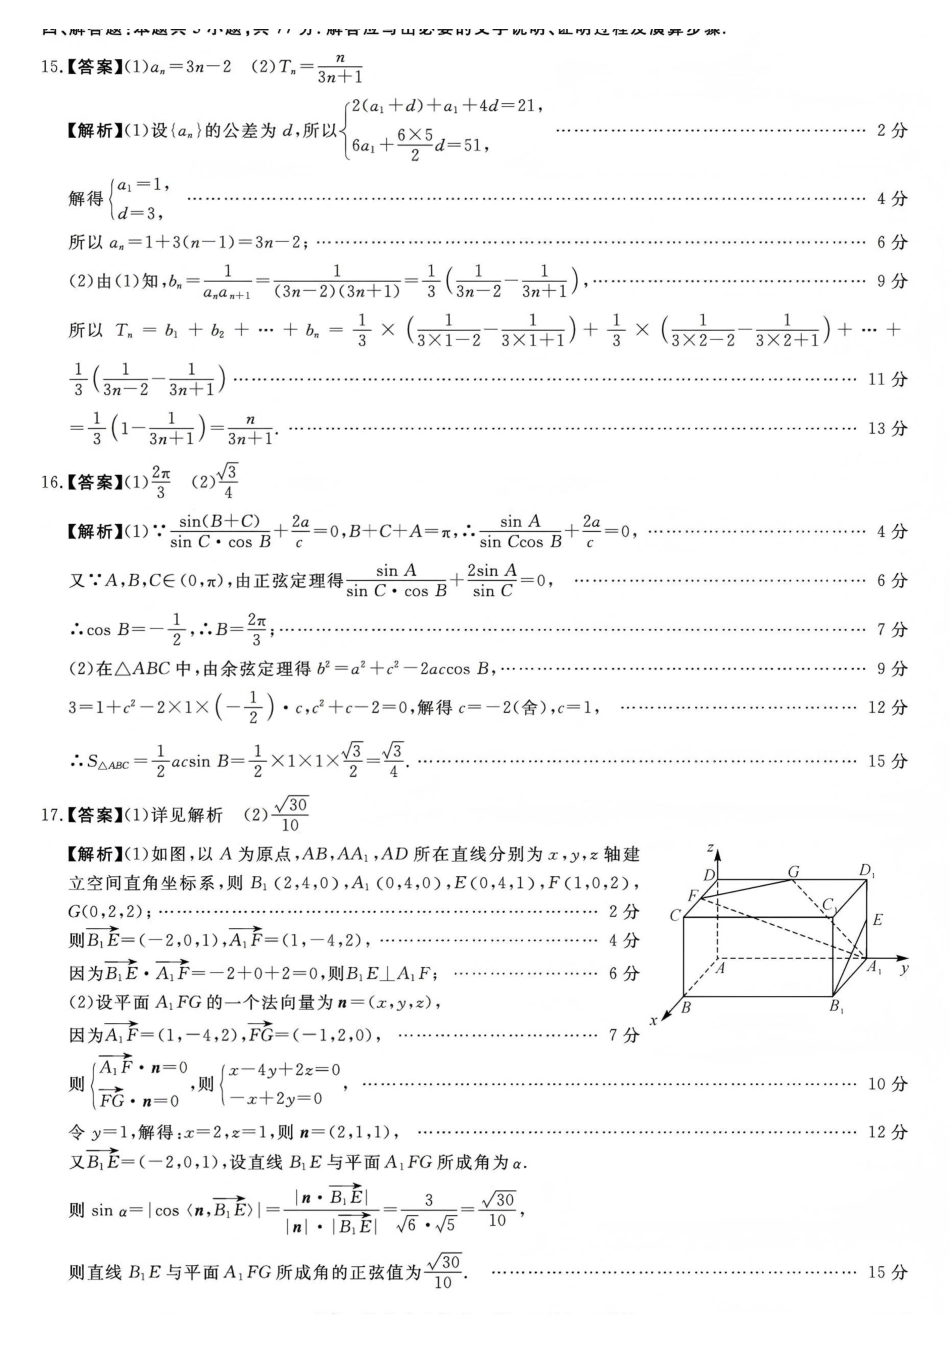 四、解答题:本题共5小题,共77分.解答应写出必要的文字说明、证明过程及演算步骤.
15.【答案】(1)aₙ=3n−2 (2)Tₙ=n/(3n+1)
【解析】(1)设{aₙ}的公差为d,所以{2(a₁+d)+a₁+4d=21, 6a₁+(6×5)/2 d=51, …… 2分
解得{a₁=1, d=3, …… 4分
所以aₙ=1+3(n−1)=3n−2; …… 6分
(2)由(1)知,bₙ=1/(aₙaₙ₊₁)=1/((3n−2)(3n+1))=1/3(1/(3n−2)−1/(3n+1)), …… 9分
所以 Tₙ = b₁ + b₂ + … + bₙ = 1/3 × (1/(3×1−2)−1/(3×1+1)) + 1/3 × (1/(3×2−2)−1/(3×2+1)) + … +
1/3(1/(3n−2)−1/(3n+1)) …… 11分
=1/3(1−1/(3n+1))=n/(3n+1). …… 13分
16.【答案】(1)2π/3 (2)√3/4
【解析】(1)∵sin(B+C)/(sin C·cos B)+2a/c=0,B+C+A=π,∴sin A/(sin Ccos B)+2a/c=0, …… 4分
又∵A,B,C∈(0,π),由正弦定理得sin A/(sin C·cos B)+2sin A/sin C=0, …… 6分
∴cos B=−1/2,∴B=2π/3; …… 7分
(2)在△ABC中,由余弦定理得b²=a²+c²−2accos B, …… 9分
3=1+c²−2×1×(−1/2)·c,c²+c−2=0,解得c=−2(舍),c=1, …… 12分
∴S△ABC=1/2 acsin B=1/2×1×1×√3/2=√3/4. …… 15分
17.【答案】(1)详见解析 (2)√30/10
【解析】(1)如图,以A为原点,AB,AA₁,AD所在直线分别为x,y,z轴建
立空间直角坐标系,则B₁(2,4,0),A₁(0,4,0),E(0,4,1),F(1,0,2),
G(0,2,2); …… 2分
则B₁E→=(−2,0,1),A₁F→=(1,−4,2), …… 4分
因为B₁E→·A₁F→=−2+0+2=0,则B₁E⊥A₁F; …… 6分
(2)设平面A₁FG的一个法向量为n=(x,y,z),
因为A₁F→=(1,−4,2),FG→=(−1,2,0), …… 7分
z
D
G
D₁
F
C
C₁
E
A
A₁
y
B
B₁
x
则{A₁F→·n=0 FG→·n=0,则{x−4y+2z=0 −x+2y=0, …… 10分
令y=1,解得:x=2,z=1,则n=(2,1,1), …… 12分
又B₁E→=(−2,0,1),设直线B₁E与平面A₁FG所成角为α.
则 sin α=|cos〈n,B₁E→〉|=|n·B₁E→|/(|n|·|B₁E→|)=3/(√6·√5)=√30/10,
则直线B₁E与平面A₁FG所成角的正弦值为√30/10. …… 15分